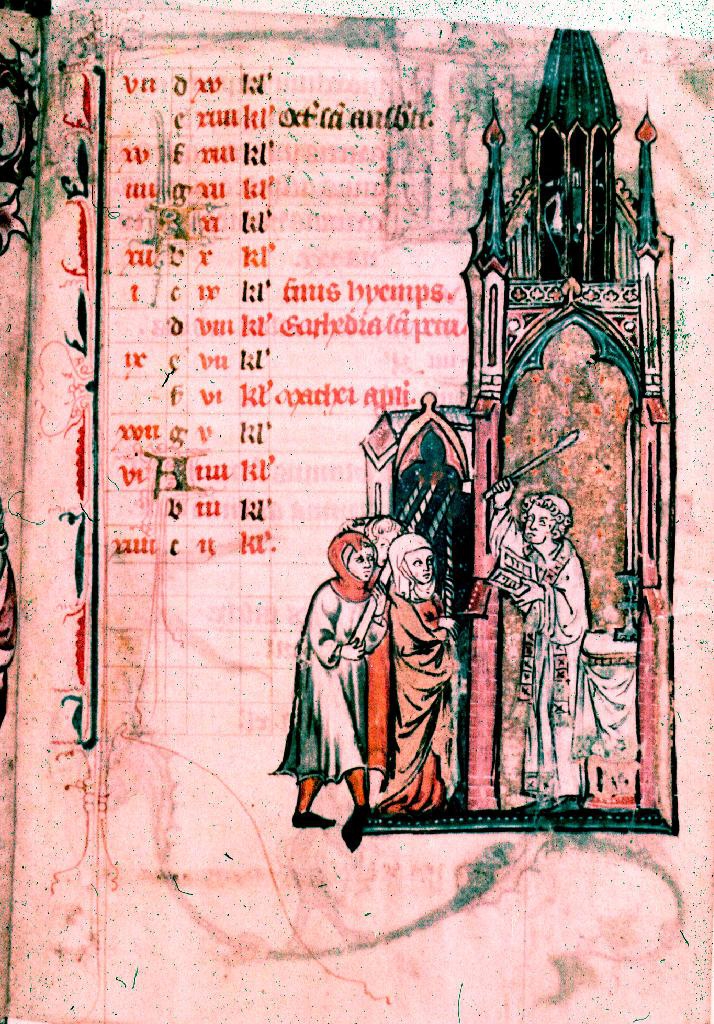 vii d xv kl'
e xiiii kl' Oct' sci
xv f xiii kl'
iiii g xii kl'
A xi kl'
xii b x kl'
i c ix kl' finis hyemps.
d viii kl' Cathedra sci petri.
ix e vii kl'
f vi kl' Mathei apli.
xvii g v kl'
vi A iiii kl'
b iii kl'
xiiii c ii kl'.